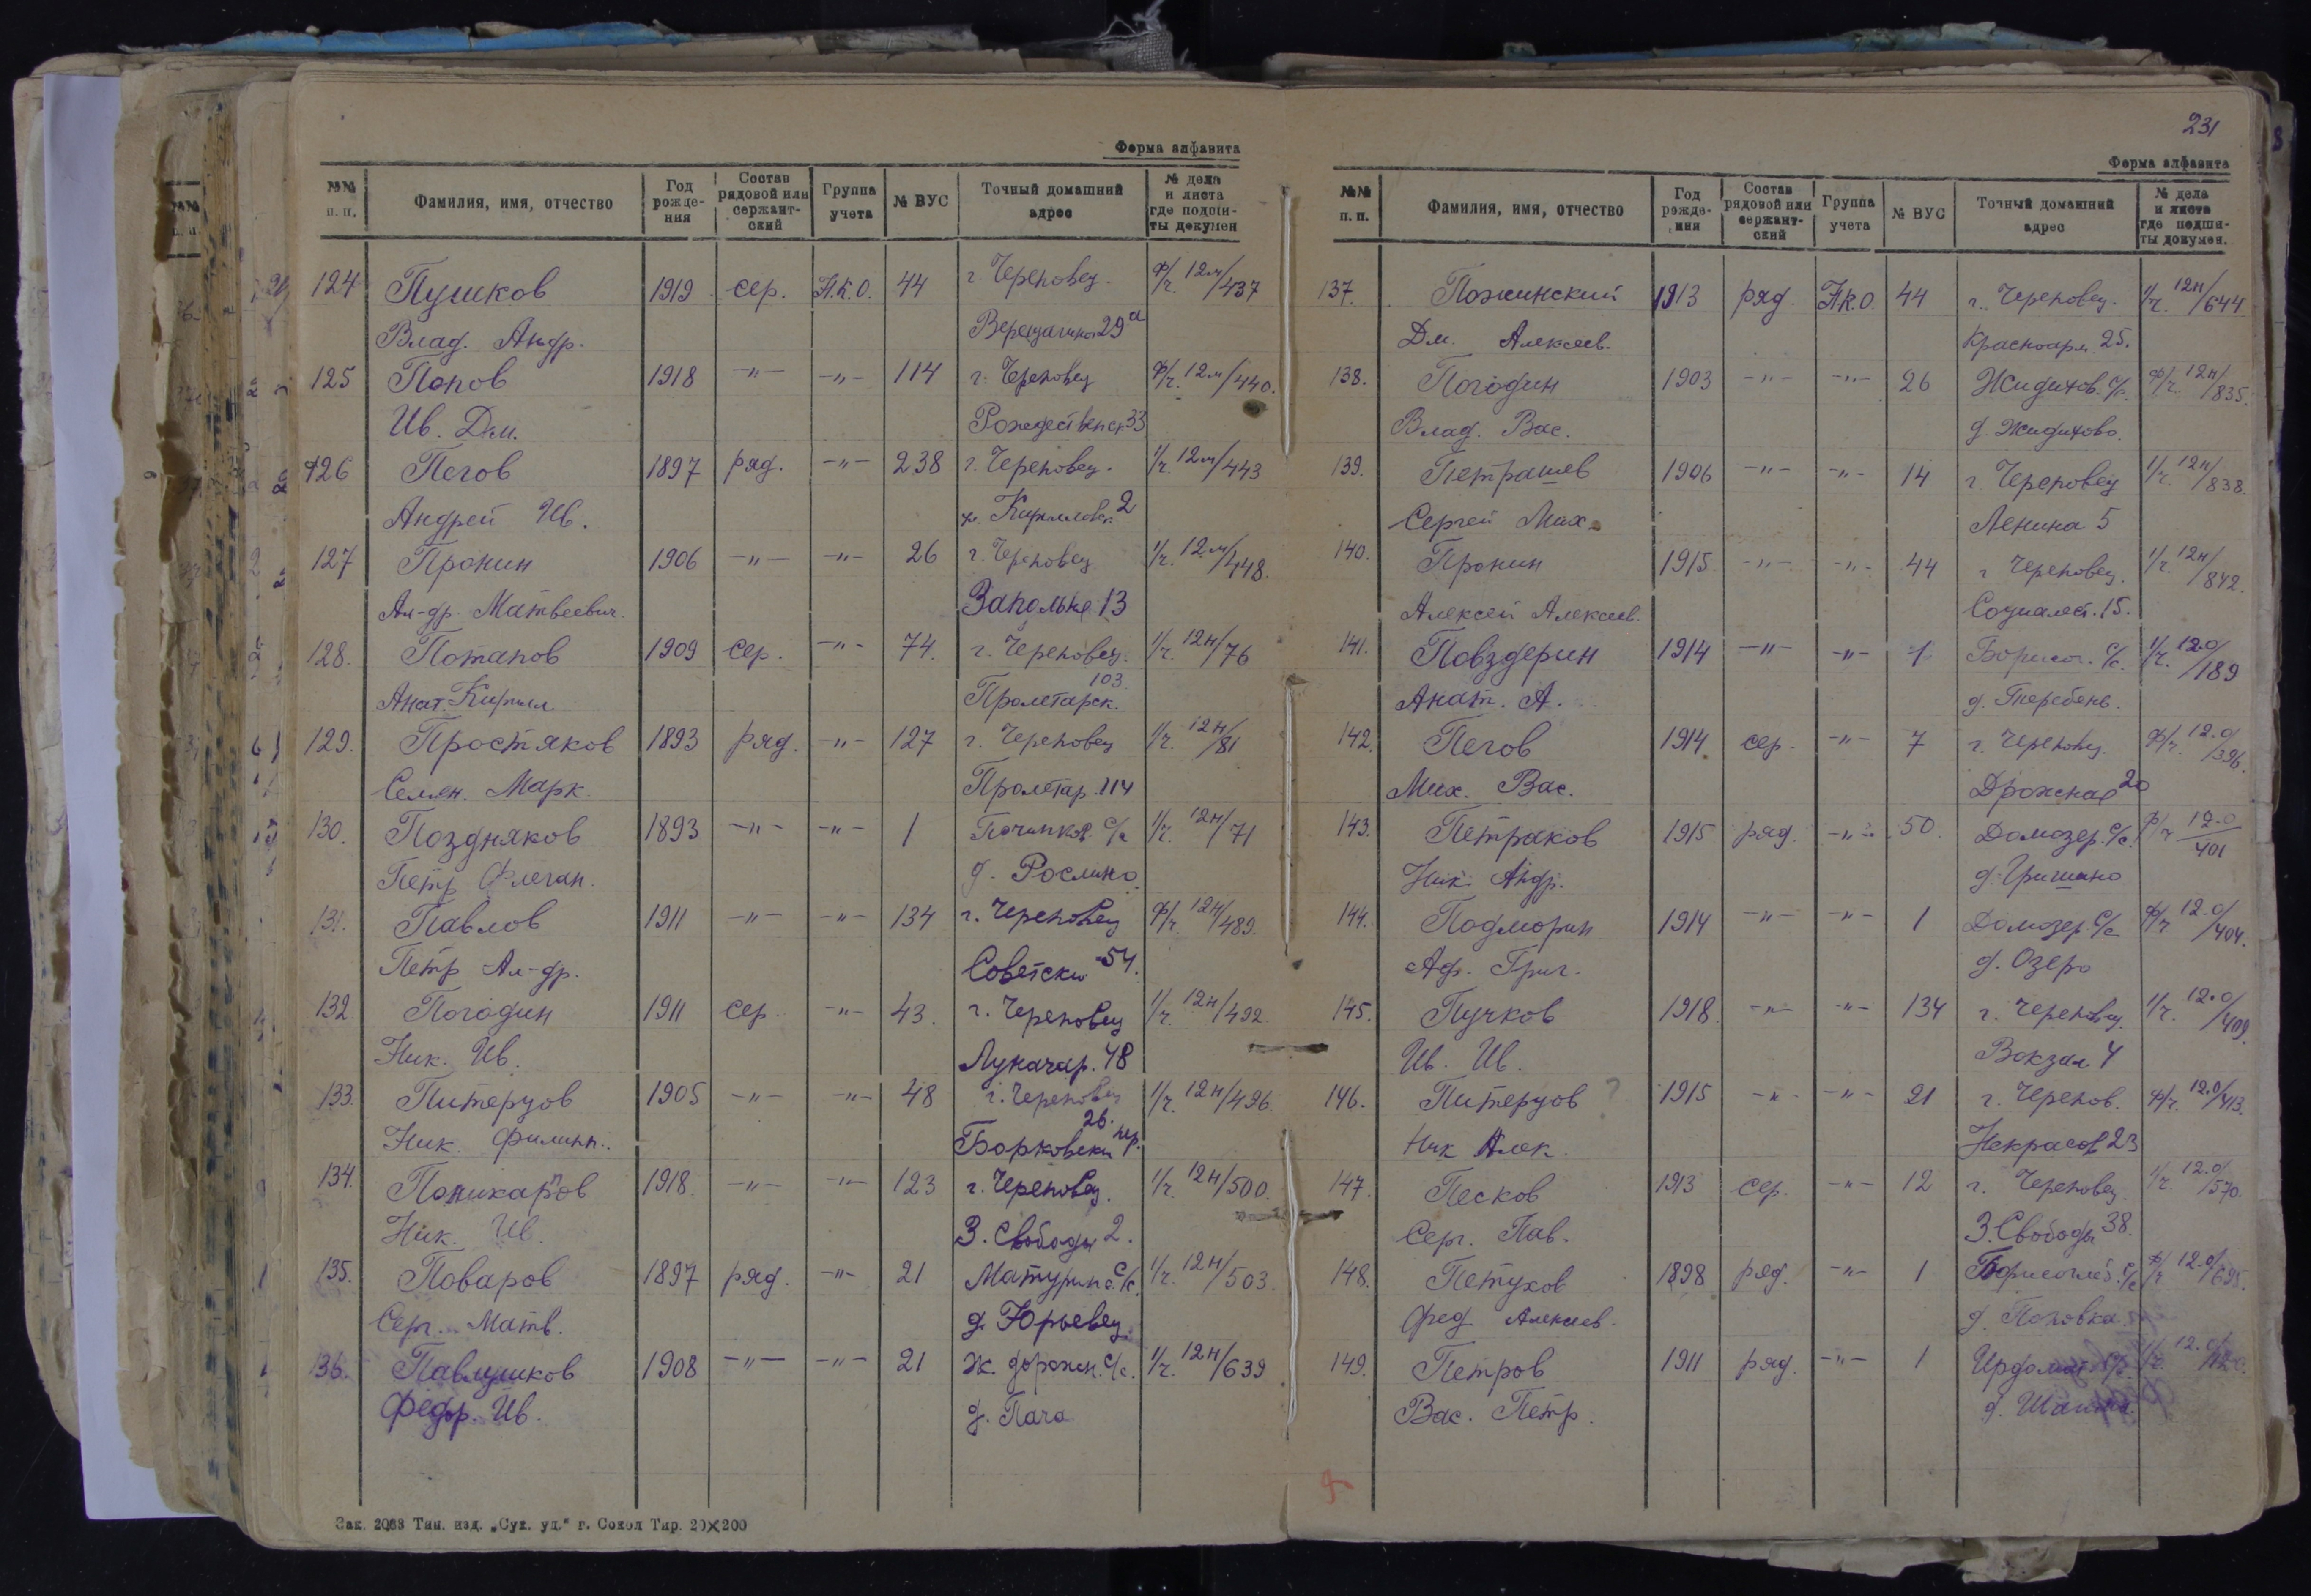 Форма алфавита
№№ п. п. Фамилия, имя, отчество Год рожде- ния Состав рядовой или сержант- ский Группа учета № ВУС Точный домашний адрес № дела и листа где подши- ты докумен
124 Пушков 1919 сер. Н.К.О. 44 г. Череповец. ф/г. 12м/437
Влад. Андр. 29а
125 Попов 1918 -"- -"- 114 г. Череповец ф/г. 12м/440.
Ив. Дм. Рождественск 33
126 Пегов 1897 ряд. -"- 238 г. Череповец. 1/г. 12м/443
Андрей Ив. Кирилловск. 2
127 Пронин 1906 -"- -"- 26 г. Череповец 1/г. 12м/448.
Ал-др. Матвеевич. Заполье 13
128. Потапов 1909 сер. -"- 74. г. Череповец. 1/г. 12н/76
Анат. Кирилл. Пролетарск. 103
129. Простяков 1893 ряд. -"- 127 г. Череповец 1/г. 12н/81
Семен. Марк. Пролетар. 114
130. Поздняков 1893 -"- -"- 1 с/с 1/г. 12н/71
Петр Флеган. д. Рослино
131. Павлов 1911 -"- -"- 134 г. Череповец ф/г. 12н/489.
Петр Ал-др. Советски 54.
132. Погодин 1911 сер. -"- 43. г. Череповец 1/г. 12н/492.
Ник. Ив. Луначар. 48
133. Питерцов 1905 -"- -"- 48 г. Череповец 1/г. 12н/496.
Ник. Филипп. 26. пер.
134. Поликарпов 1918. -"- -"- 123 г. Череповец. 1/г. 12н/500.
Ник. Ив. З. Свободы 2.
135. Поваров 1897 ряд. -"- 21 Матурин. с/с. 1/г. 12н/503.
Серг. Матв. д. Юрьевец.
136. Павлушков 1908 -"- -"- 21 ж. дорожн. с/с. 1/г. 12н/639
Федор. Ив. д. Пача
Зак. 2063 Тип. изд. „Сух. ул.“ г. Сокол Тир. 20×200
231
Форма алфавита
№№ п. п. Фамилия, имя, отчество Год рожде- ния Состав рядовой или сержант- ский Группа учета № ВУС Точный домашний адрес № дела и листа где подши- ты докумен.
137. 1913 ряд. Н.К.О. 44 г. Череповец. 1/г. 12н/644
Дм. Алексеев. Красноарм. 25.
138. Погодин 1903 -"- -"- 26 Жидихов. с/с. ф/г. 12н/835.
Влад. Вас. д. Жидихово.
139. Петрашев 1906 -"- -"- 14 г. Череповец 1/г. 12н/838.
Сергей Мих. Ленина 5
140. Пронин 1915 -"- -"- 44 г Череповец. 1/г. 12н/842.
Алексей Алексеев. Социалист. 15.
141. Повздерин 1914 -"- -"- 1 Борисог. с/с. 1/г. 12.о/189
Анат. А. д. Теребень.
142. Пегов 1914. сер. -"- 7 г. Череповец. ф/г. 12.о/396.
Мих. Вас. 20
143. Петраков 1915 ряд. -"- 50. Домозер. с/с. ф/г 12.о/401
Ник. Андр. д. Гришино
144. Подморин 1914 -"- -"- 1 Домозер. с/с ф/г 12.о/404.
Аф. Григ. д. Озеро
145. Пучков 1918. -"- -"- 134 г. Череповец. 1/г. 12.о/409.
Ив. Ив. Вокзал. 4
146. Питерцов ? 1915 -"- -"- 21 г. Черепов. ф/г. 12.о/413.
Ник Алек. Некрасов 23
147. Песков 1913 сер. -"- 12 г. Череповец. 1/г. 12.о/570.
Серг. Пав. З. Свободы 38.
148. Петухов 1898 ряд. -"- 1 Борисоглеб. с/с ф/г. 12.о/695.
Фед Алексеев. д. Поповка.
149. Петров 1911 ряд. -"- 1 Ирдомат. 12.о/
Вас. Петр. д.